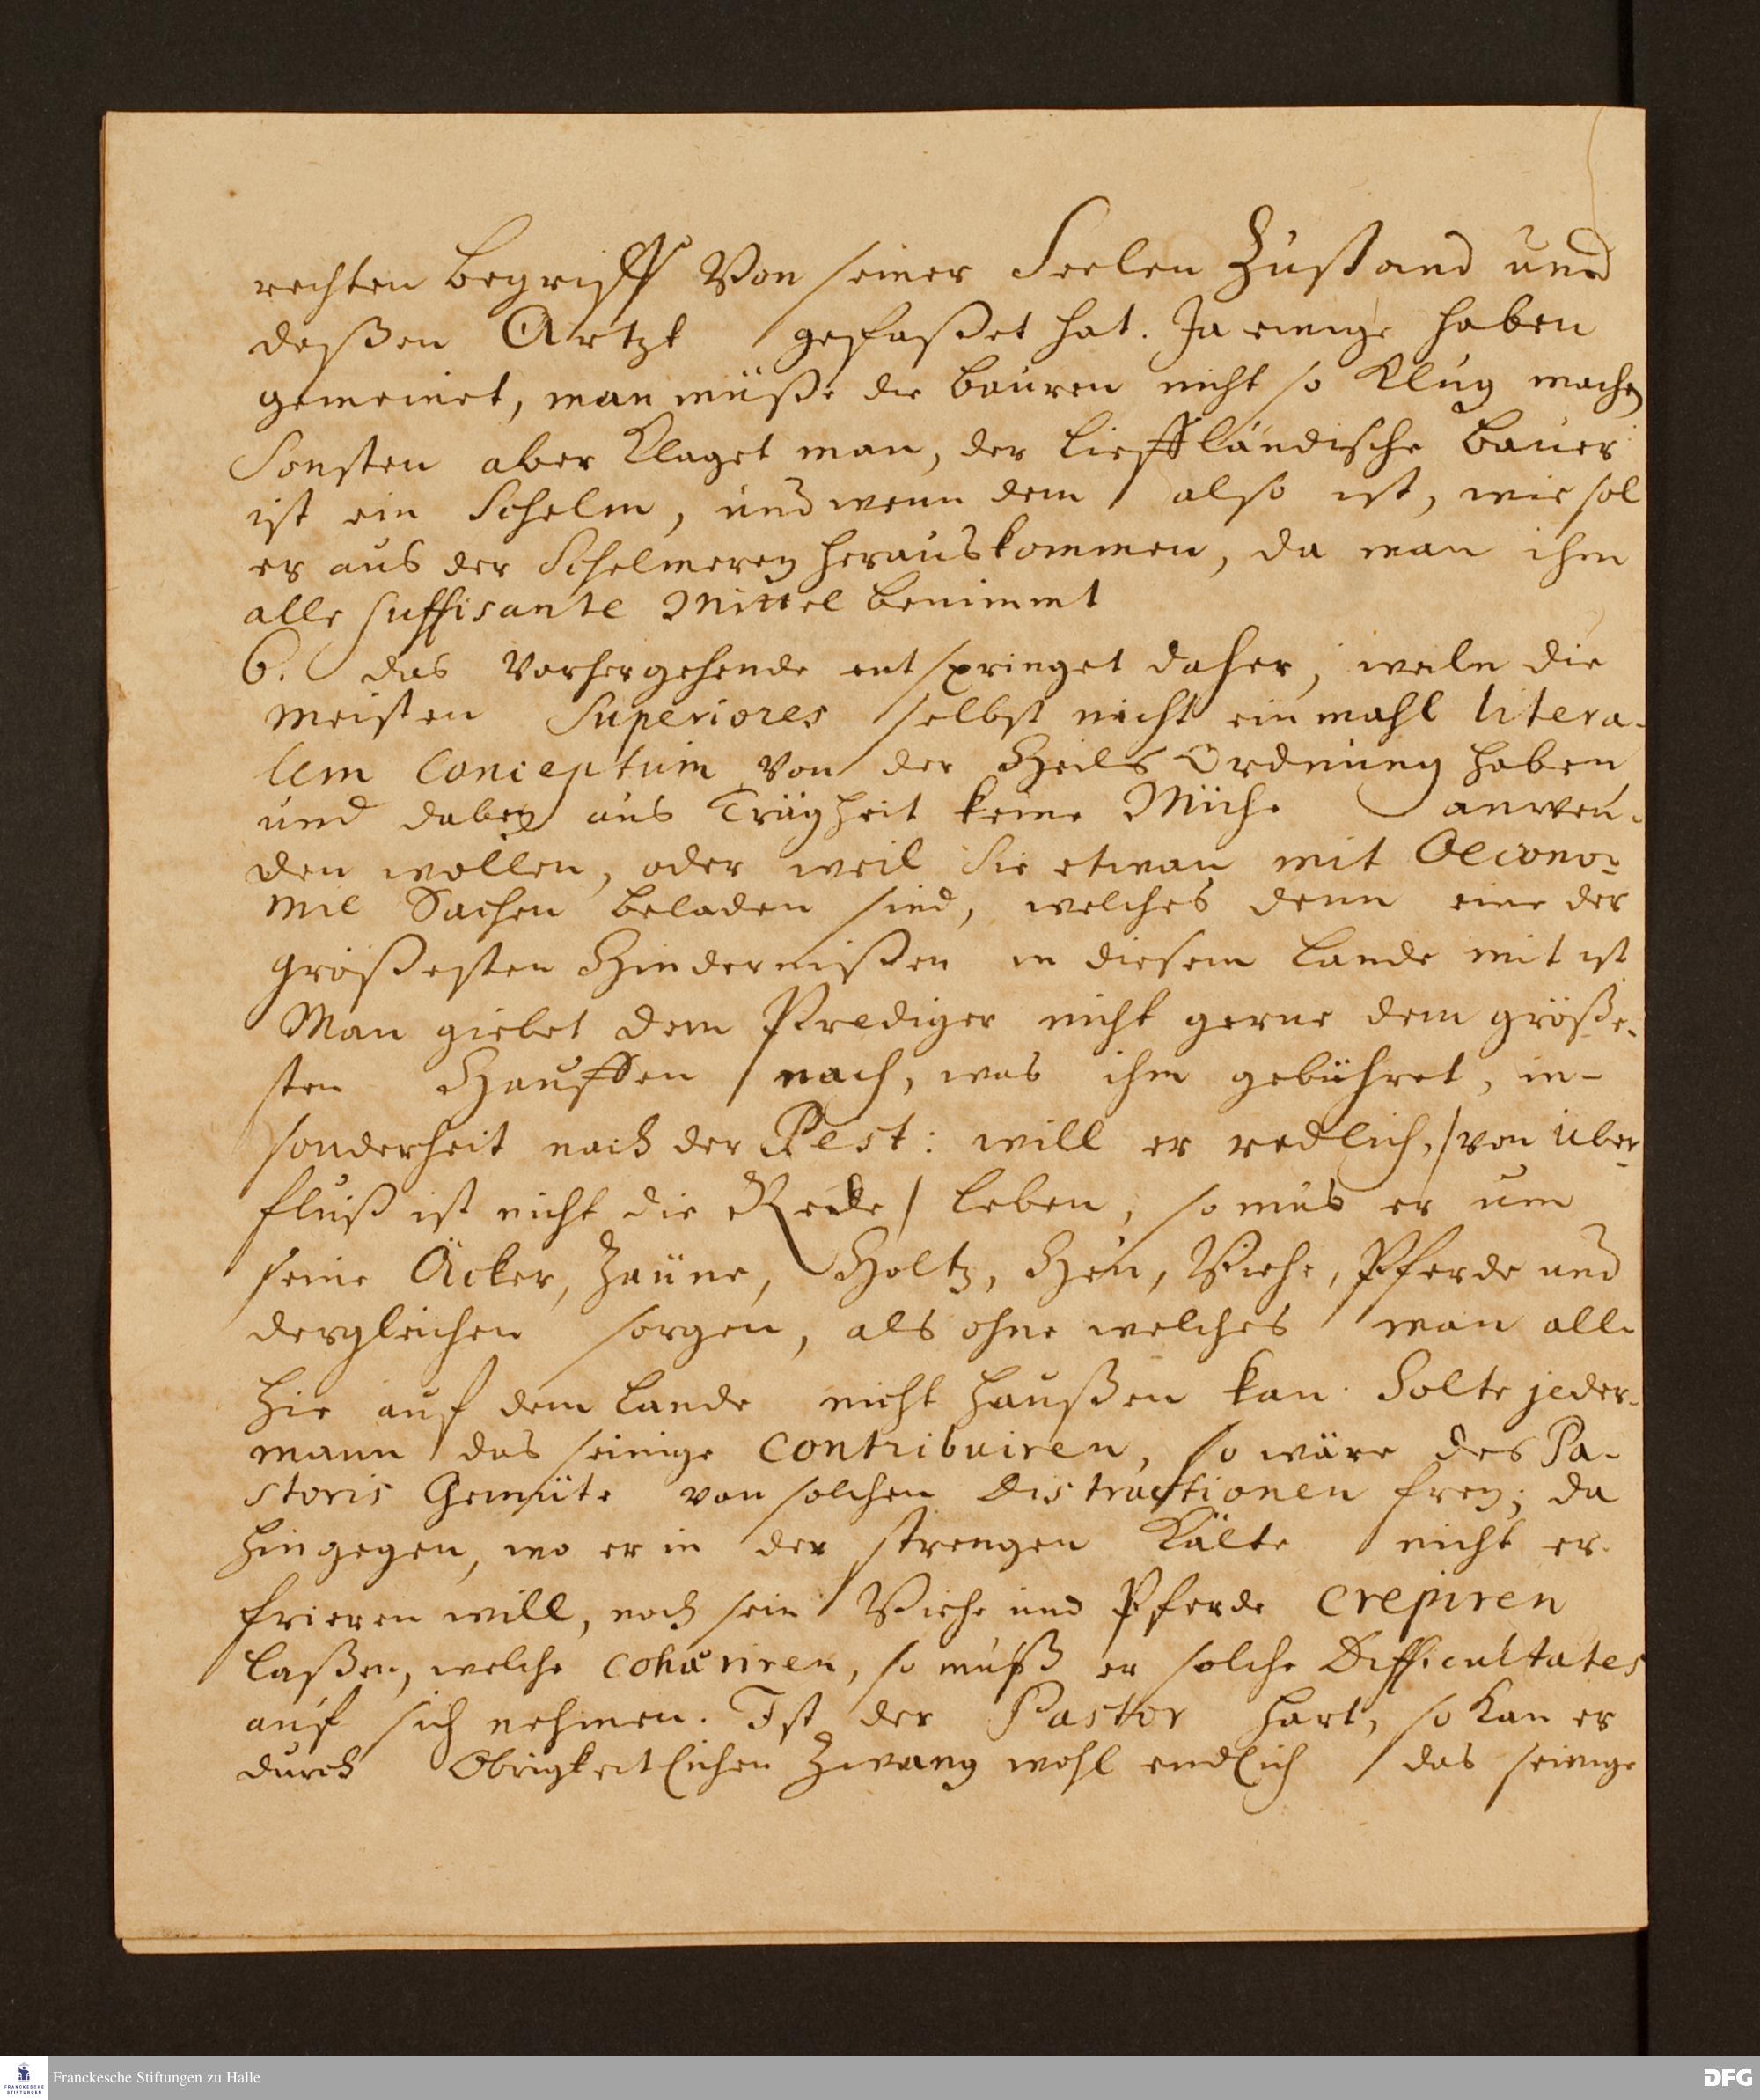 rechten begriff Von seiner Seelen Zustand und
deßen Artzt gefaßet hat. Ja einige haben
gemeinet, man müße die bauren nicht so Klug machen
Sonsten aber Klaget man, der lieffländische bauer
ist ein Schelm, und wenn dem also ist, wie sol
er aus der Schelmerey herauskommen, da man ihm
alle suffisante Mittel benimmt
6. das Vorhergehende entspringet daher, weiln die
meisten Superiores selbst nicht einmahl litera-
lem Conceptum von der Heils Ordnung haben
und dabey aus Trägheit keine Mühe anwen-
den wollen, oder weil Sie etwan mit Oecono-
mie Sachen beladen sind, welches denn eine der
größesten Hindernißen in diesem Lande mit ist
Man giebet dem Prediger nicht gerne dem größe-
sten Hauffen nach, was ihm gebühret, in-
sonderheit nach der Pest: will er redlich, /von über-
fluß ist nicht die Rede/ leben, so mus er um
seine Äcker, Zäune, Holtz, Heu, Viehe, Pferde und
dergleichen sorgen, als ohne welches man all-
hie auf dem Lande nicht haußen kan. Solte jeder-
mann das seinige contribuiren, so wäre des Pa-
storis Gemüte von solchen Distractionen frey; da
hingegen, wo er in der strengen Kälte nicht er-
frieren will, noch sein Viehe und Pferde crepiren
laßen, welche cohæriren, so muß er solche Difficultates
auf sich nehmen. Ist der Pastor hart, so Kan er
durch Obrigkeitlichen Zwang wohl endlich das seinige
Franckesche Stiftungen zu Halle
DFG